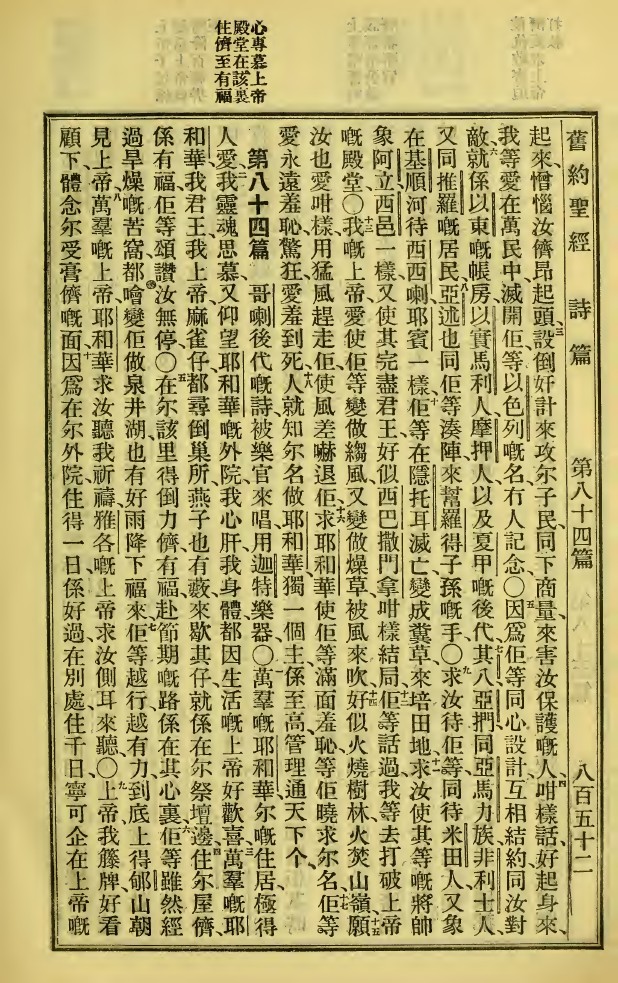 心專慕上帝
殿堂在該裏
住儕至有福
舊約聖經 詩篇 第八十四篇 八百五十二
起來、憎惱汝儕昂起頭、三設倒奸計來攻尔子民、同下商量來害汝保護嘅人、四咁樣話、好起身來、
我等愛在萬民中、滅開佢等、以色列嘅名冇人記念〇五因爲佢等同心設計、互相結約同汝對
敵、六就係以東嘅帳房、以實馬利人、摩押人、以及夏甲嘅後代、七其八亞捫同亞馬力族、非利士人、
又同推羅嘅居民、八亞述也同佢等湊陣、來幫羅得子孫嘅手〇九求汝待佢等、同待米田人、又象
在基順河待西西喇耶賓一樣、十佢等在隱托耳滅亡、變成糞草來培田地、十一求汝使其等嘅將帥
象阿立西邑一樣、又使其完盡君王、好似西巴撒門拿咁樣結局、十二佢等話過、我等去打破上帝
嘅殿堂〇十三我嘅上帝、愛使佢等變做縐風、又變做燥草被風來吹、十四好似火燒樹林、火焚山嶺、十五願
汝也愛咁樣用猛風趕走佢、使風差嚇退佢、十六求耶和華使佢等滿面羞恥、等佢曉求尔名、十七佢等
愛永遠羞恥驚狂、愛羞到死、十八人就知尔名做耶和華、獨一個主、係至高管理通天下个、
第八十四篇 哥喇後代嘅詩、被樂官來唱、用迦特樂器〇一萬羣嘅耶和華、尔嘅住居極得
人愛、二我靈魂思慕又仰望耶和華嘅外院、我心肝我身體、都因生活嘅上帝好歡喜、三萬羣嘅耶
和華、我君王、我上帝、麻雀仔都尋倒巢所、燕子也有藪來歇其仔、就係在尔祭壇邊、四住尔屋儕
係有福、佢等頌讚汝無停〇五在尔該里得倒力儕有福、赴節期嘅路係在其心裏、六佢等雖然經
過旱燥嘅苦窩、都噲變佢做泉井湖、也有好雨降下福來、七佢等越行越有力、到底上得郇山朝
見上帝、八萬羣嘅上帝耶和華、求汝聽我祈禱、雅各嘅上帝、求汝側耳來聽〇九上帝我籐牌、好看
顧下、體念尔受膏儕嘅面、十因爲在尔外院住得一日、係好過在別處住千日、寧可企在上帝嘅